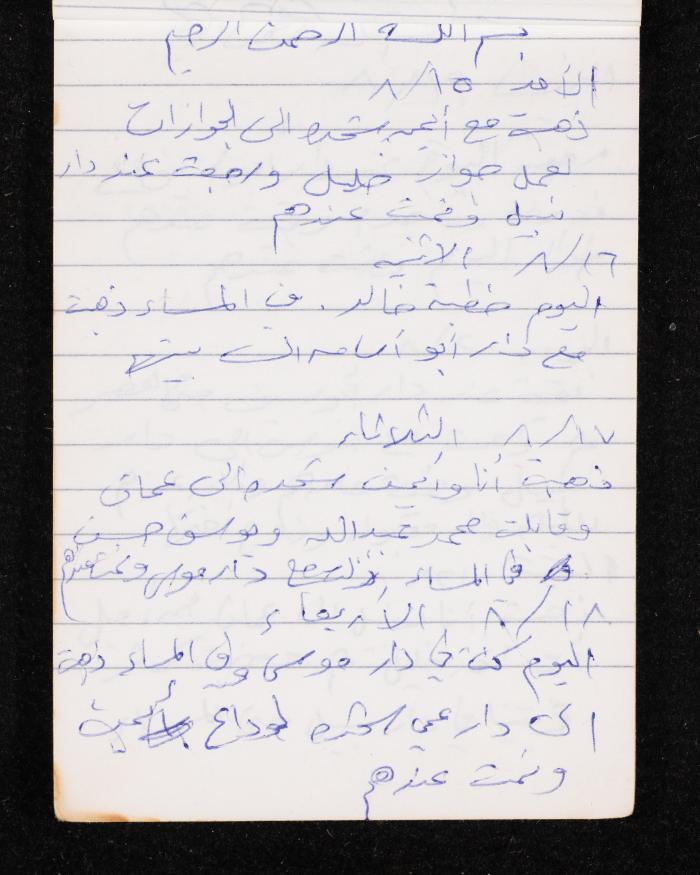 بسم الله الرحمن الرحيم
الأحد ٨/١٥
ذهبت مع أيمن شحده الى الجوازات
لعمل جواز خليل ورجعت عند دار
نبيل ونمت عندهم
٨/١٦ الاثنين
اليوم خطبة خالد. في المساء ذهبت
مع دار أبو أسامه الى بيتهم
٨/١٧ الثلاثاء
ذهبت أنا وأيمن شحده الى عمان
وقابلت محمد عبدالله ويوسف حسين
في المساء دار موسى ونمت عندهم
٨/١٨ الأربعاء
اليوم كنت في دار موسى وفي المساء ذهبت
الى دار عمي شحده لوداع أيمن
ونمت عندهم